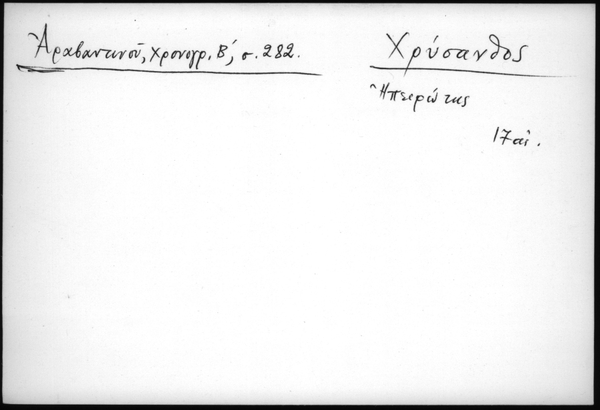 Ἀραβαντινοῦ, Χρονογρ. Β', σ. 282.
Χρύσανθος
Ἠπειρώτης
17 αἰ.